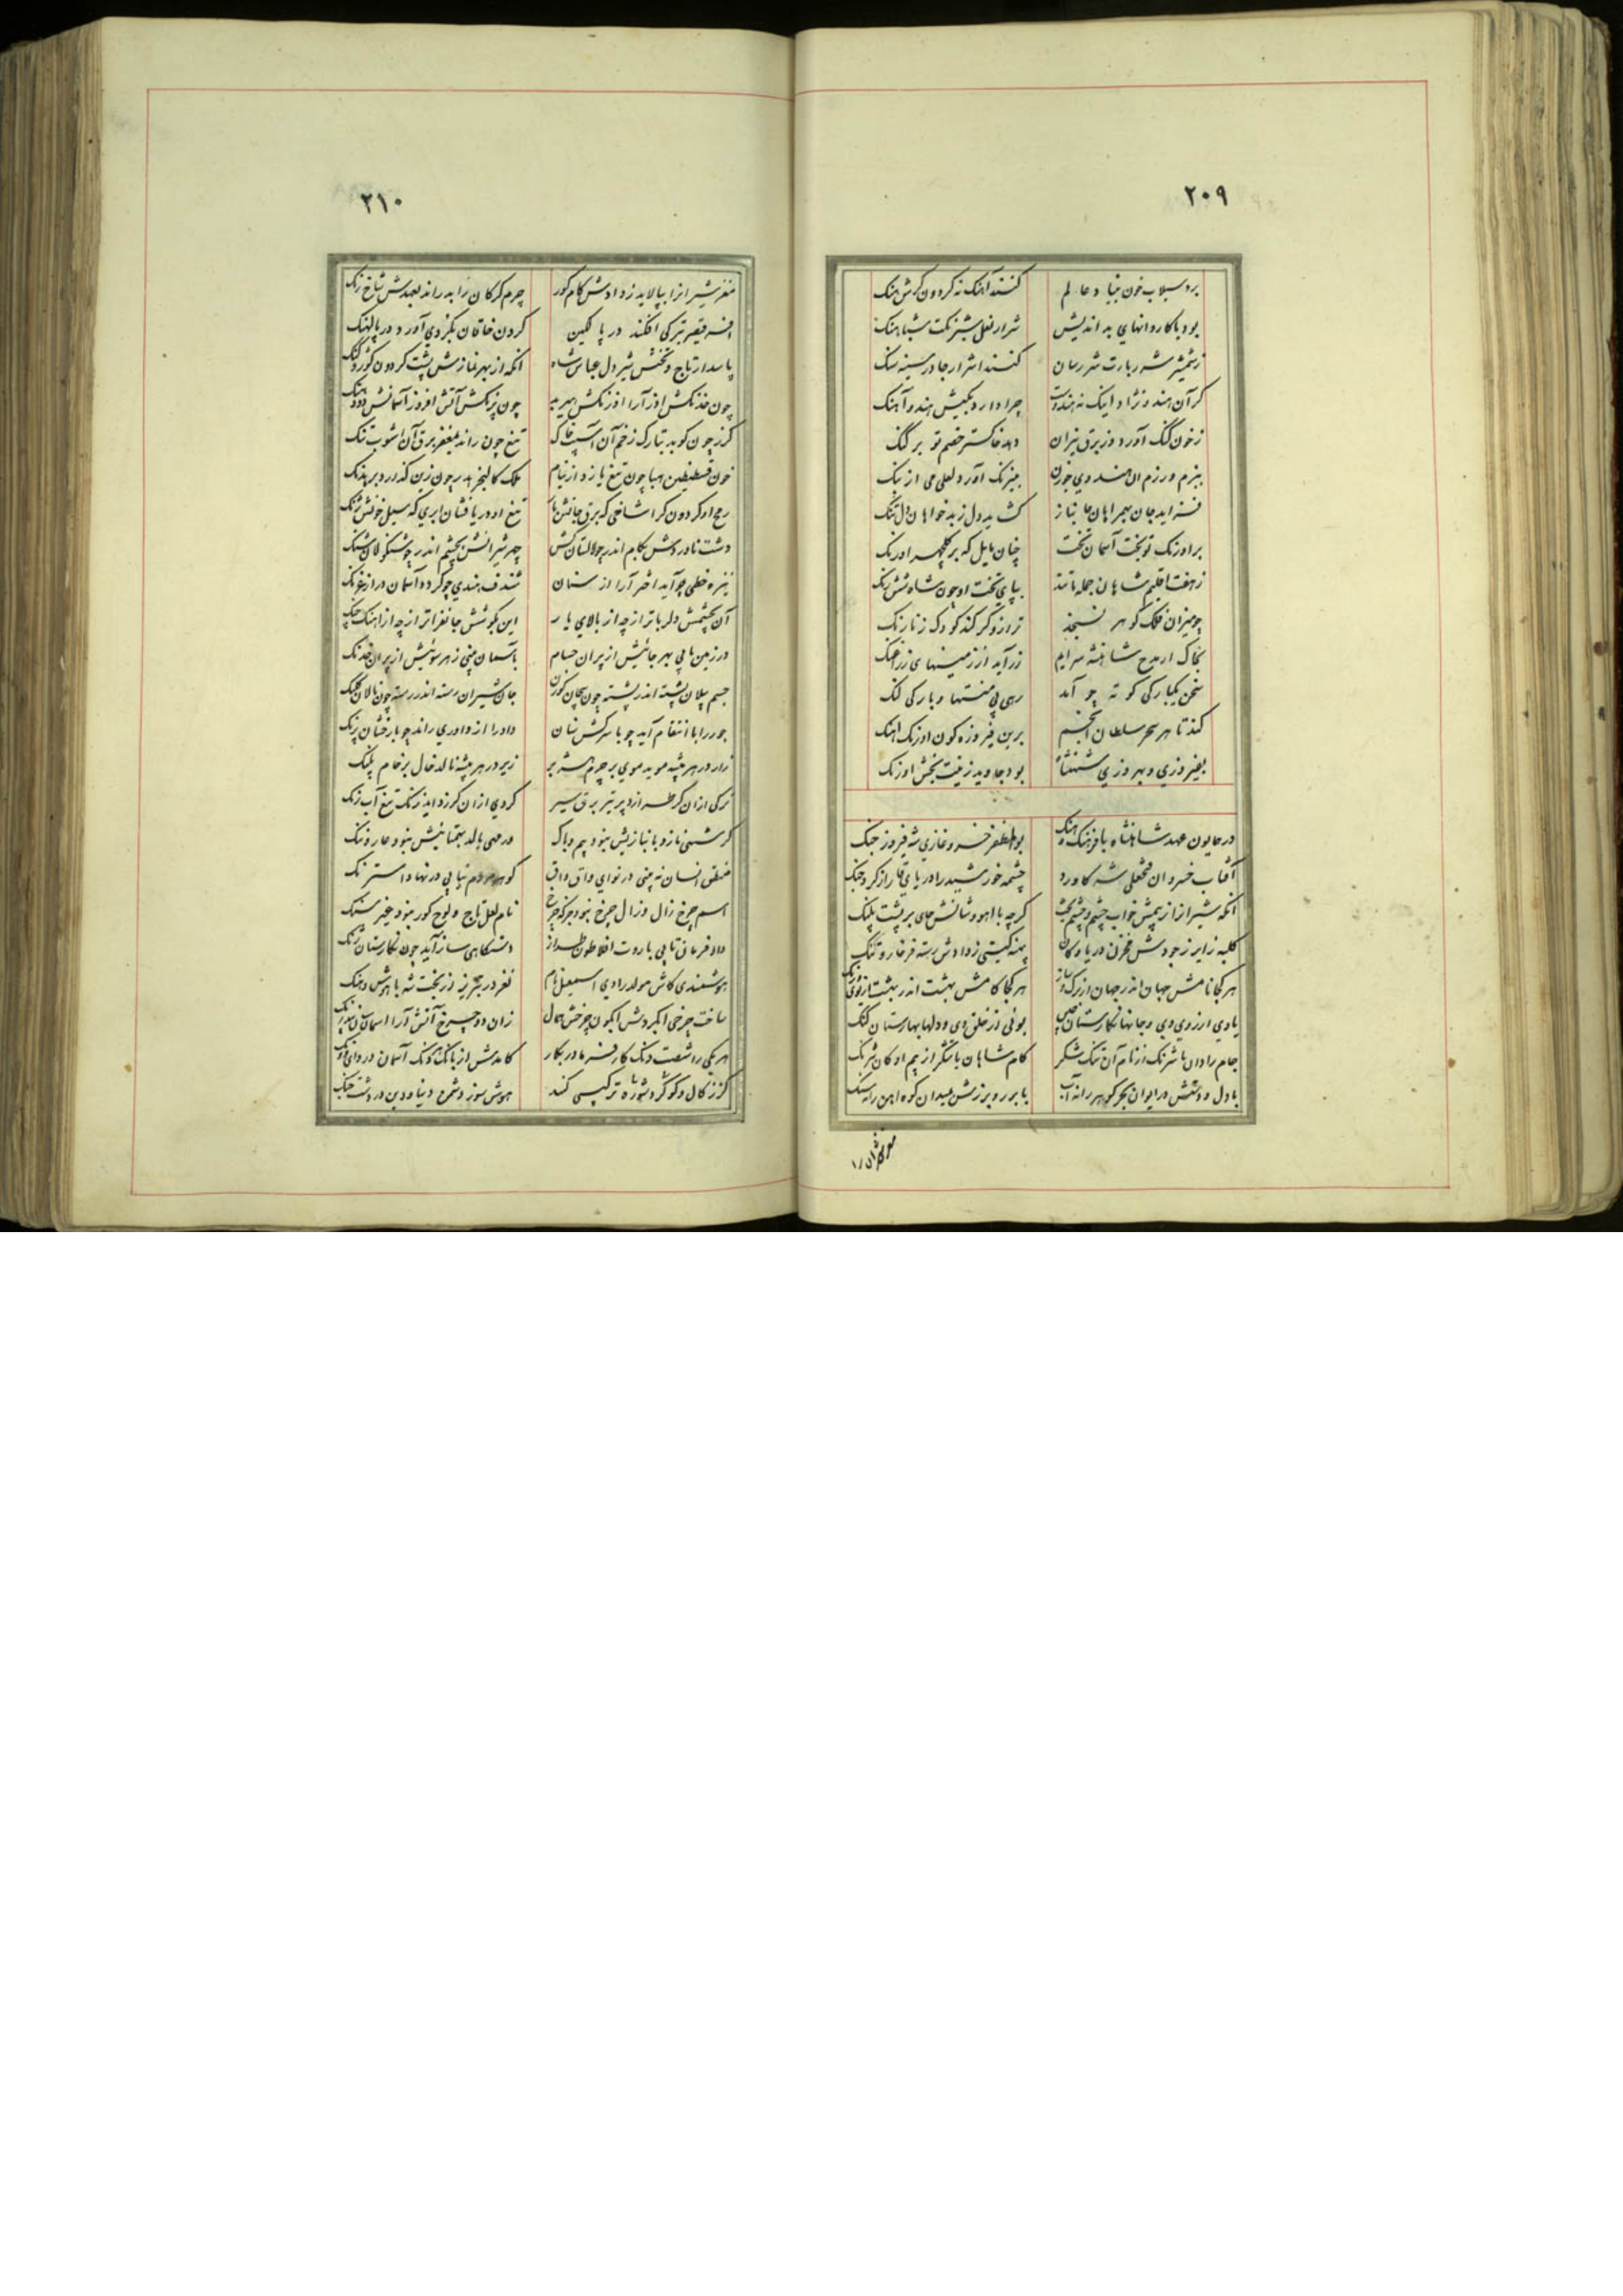 ۲۰۹
برد سیلاب خون بنیاد عالم کنند آهنگ نه گردون گرش هنگ
بود با کاروانهای بد اندیش شرار نعل شبرنگت شباهنگ
زشمشیر شرربارت شررسان کنند اشرار جا در سینه سنگ
گر آن هندو نژاد اینک نه هندوست چرا دارد بکیش هندو آهنگ
زخون گنگ آورد وز برق نیران دهد خاکستر خصم تو بر گنگ
ببزم و رزم آن هندوی خون بیرنگ آورد لعلی می از
فزاید جان بهمراهان جانباز کشاید دل ز بدخواهان دل تنگ
بر اورنگ تو بخت آسمان تخت چنان مایل که بر گلچهر اورنگ
ز هفت اقلیم شاهان جمله تا بپای تخت او چون شاه شش رنگ
چو میزان فلک گوهر نسنجد ترازو گر کند کودک ز نارنگ
بخاک ار مدح شاهنشه سرایم زر آید از زمینهای
سخن یکبارگی کوته چو آمد رهی بی منتها و بارگی لنگ
کند تا هر سحر سلطان انجم برین فیروزه گون اورنگ آهنگ
بفیروزی و بهروزی شهنشاه بود جاوید زینت بخش اورنگ
در همایون عهد شاهنشاه با فرهنگ و هنگ بوالمظفر خسرو غازی شه فیروز جنگ
آفتاب خسروان فتحعلی شه کاورد چشمه خورشید را دریای قار از گرد جنگ
آنکه شیران از بیمش خواب چشم و چشم بخت گرچه با آهووشانش جای بر پشت پلنگ
کلبه زایر ز جودش مخزن دریا و کان پهنه گیتی ز دادش رسته فرخار و گنگ
هر کجا نامش جهان اندر جهان از برگ و ساز هر کجا کامش بهشت اندر بهشت از بوی و رنگ
یادی از روی وی و جانها نگارستان چین بوئی از خلق وی و دلها بهارستان گنگ
جام رادان با شرنگ از نام آن تنگ شکر کام شاهان با شکر از بیم او کان شرنگ
با دل و دستش در ایوان بحر گوهر رانه آب با بر و برزش بمیدان کوه آهن رانه سنگ
مغز شیران را
۲۱۰
مغز شیران را بپالاید ز دادش کام گور چرم گرگان را بدراند بعهدش شاخ رنگ
افسر قیصر بترکی افکند در پالکین گردن خاقان بگردی آورد در پالهنگ
پاسدار تاج و تختش شیر دل عباس شاه آنکه از بهر نمازش پشت گردون گوژ و
چون خدنگش آذر آرا آذرنگش چون پرنگش آتش افروز آسمانش دود رنگ
گرز چون کوبد بتارک زخم آن آسیب خاک تیغ چون راند بمغفر برق آن آشوب
خون قسطنطین هبا چون تیغ یازد از نیام ملک کالنجر هدر چون زین گذارد بر
رمح او گردون گرا شاخی که برق جانش بار تیغ او دریا فشان ابری که سیل خونش
دشت ناوردش بکام اندر چو لالستان کش چهر شیرانش بچشم اندر چو شنگولان شنگ
نیزه خطی چو آید اختر آرا از سنان شندف هندی چو گردد آسمان در از غرنگ
آن بچشمش دلرباتر از چه از بالای یار این بگوشش جانفزاتر از چه از آهنگ چنگ
در زمین یابی بهر جائیش از پران حسام باسمان بینی ز هر سوئیش از پران خدنگ
جسم پیلان پشته اندر پشته چون پیچان گوزن جان شیران رسته اندر رسته چون نالان کلنگ
جور را با انتقام آید چو با سرکش سنان داد را از داوری راند چو بارخشان پرنگ
زار در هر بیشه موید موی بر چرم هژبر زیر در هر بیشه نالد خال بر خام پلنگ
ترکی از آن گر طرازد بر تیر برق سیر گردی از آن گر زداید زنگ تیغ آب رنگ
گر شهی نازد بانبازیش نبود بیم و باک ور مهی بالد بهمتائیش نبود عار و ننگ
منطق انسان نه بینی در نوای واق واق گوهر مردم نیابی در نهاد استرنگ
اسم چرخ زال و زال چرخ نبود جز که چرخ نام لعل تاج و لوح گور نبود غیر سنگ
داد فرمان تا پی باروت افلاطون طراز دستگاهی ساز آید چون نگارستان
هوشمندی کاش مولد رادی اسمعیل نام نغز در تبریز از بخت شه با هوش و هنگ
ساخت چرخی آبگردش آبگون چرخش همال زان دو چرخ آتش آرا آسمان
هر یکی را شصت دنگ کارفرما در بکار کامدش از بانگ هر دنگ آسمان در وای
کز زکال و گوگرد و شوره تا ترکیب کند هوش سوز دشمن دنیا و دین در دشت جنگ